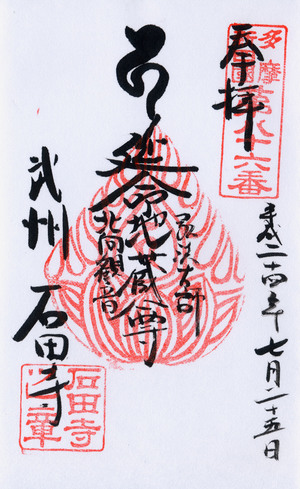 奉拝
多摩
四國
第八十六番
平成二十四年七月二十五日
弘法大師
延命地蔵尊
北向観音
武州 石田寺
石田寺